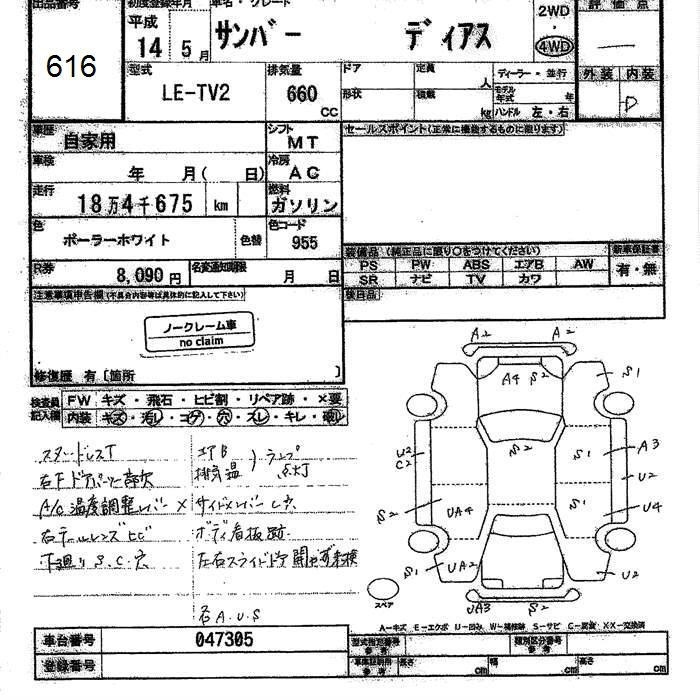 出品番号 初度登録年月 車名・グレード 2WD 評価点
平成 サンバー ディアス ・
616 14 5月 4WD
型式 排気量 ドア 定員 人 ディーラー・並行 外装 内装
LE-TV2 660 cc 形状 積載 kg モデル年式 年 D
ハンドル 左・右
車歴 自家用 シフト MT セールスポイント(正常に機能するものに限ります)
車検 年 月( 日) 冷房 AC
走行 18万4千675 km 燃料 ガソリン
色 ポーラーホワイト 色替 色コード 955
装備品(純正品に限り○をつけてください) 新車保証書
R券 8,090円 名変通知期限 月 日 PS PW ABS エアB AW 有・無
SR ナビ TV カワ
注意事項申告欄(不具合内容等は具体的に記入して下さい) 後日品
ノークレーム車
no claim
修復歴 有〔箇所 〕
検査員記入欄 FW キズ・飛石・ヒビ割・リペア跡・×要
内装 キズ・汚レ・コゲ・穴・スレ・キレ・破レ
スタッドレスT エアB
排気温 ランプ点灯
A/C温度調整レバー× サイドメンバーC穴
右テールレンズヒビ ボディ看板跡
下廻りS.C.穴 左右スライドドア
右A.U.S
A2 A2
A4 S2 S1
U2 C2 S2 S1 A3
U2
S2 UA4 S1 U4
S1 UA2 U2
スペア UA3 S2
A―キズ E―エクボ U―凹み W―補修跡 S―サビ C―腐蝕 XX―交換済
車台番号 047305 型式指定番号 参考 類別区分番号 参考
登録番号 参考 長さ cm 幅 cm 高さ cm